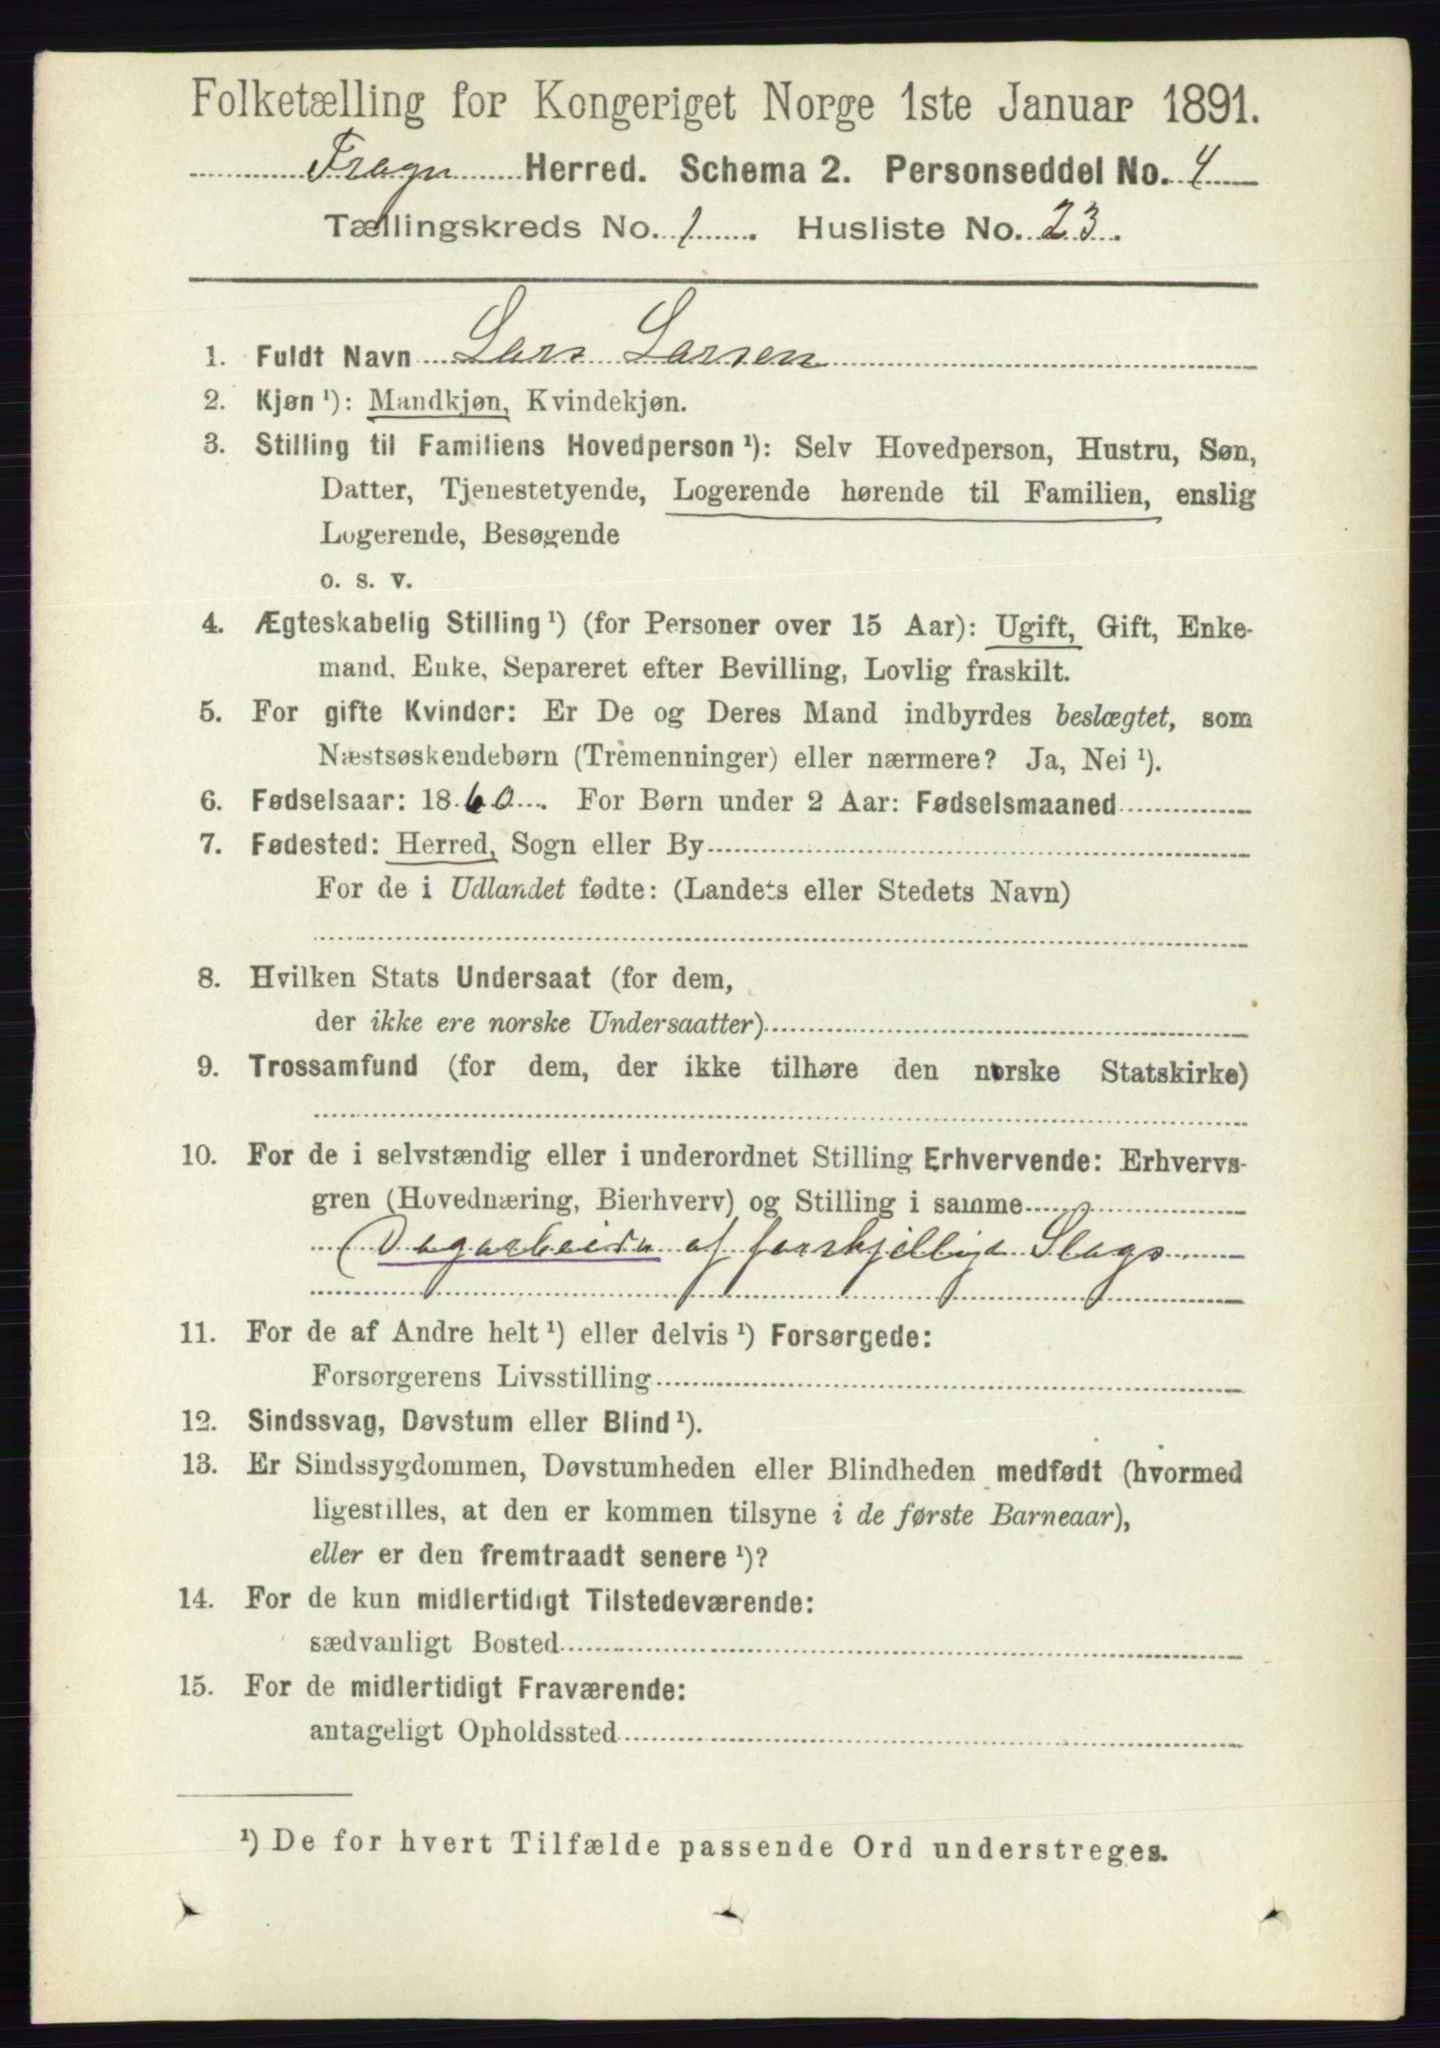 Folketælling for Kongeriget Norge 1ste Januar 1891.
Fragn Herred. Schema 2. Personseddel No. 4
Tællingskreds No. 1. Husliste No. 23.
1. Fuldt Navn Lars Larsen
2. Kjøn ¹): Mandkjøn, Kvindekjøn.
3. Stilling til Familiens Hovedperson ¹): Selv Hovedperson, Hustru, Søn,
Datter, Tjenestetyende, Logerende hørende til Familien, enslig
Logerende, Besøgende
o. s. v.
4. Ægteskabelig Stilling ¹) (for Personer over 15 Aar): Ugift, Gift, Enke-
mand, Enke, Separeret efter Bevilling, Lovlig fraskilt.
5. For gifte Kvinder: Er De og Deres Mand indbyrdes beslægtet, som
Næstsøskendebørn (Tremenninger) eller nærmere? Ja, Nei ¹).
6. Fødselsaar: 1860. For Børn under 2 Aar: Fødselsmaaned
7. Fødested: Herred, Sogn eller By
For de i Udlandet fødte: (Landets eller Stedets Navn)
8. Hvilken Stats Undersaat (for dem,
der ikke ere norske Undersaatter)
9. Trossamfund (for dem, der ikke tilhøre den norske Statskirke)
10. For de i selvstændig eller i underordnet Stilling Erhvervende: Erhvervs-
gren (Hovednæring, Bierhverv) og Stilling i samme
Dagarbeider af forskjellige Slags
11. For de af Andre helt ¹) eller delvis ¹) Forsørgede:
Forsørgerens Livsstilling
12. Sindssvag, Døvstum eller Blind ¹).
13. Er Sindssygdommen, Døvstumheden eller Blindheden medfødt (hvormed
ligestilles, at den er kommen tilsyne i de første Barneaar),
eller er den fremtraadt senere ¹)?
14. For de kun midlertidigt Tilstedeværende:
sædvanligt Bosted
15. For de midlertidigt Fraværende:
antageligt Opholdssted
¹) De for hvert Tilfælde passende Ord understreges.